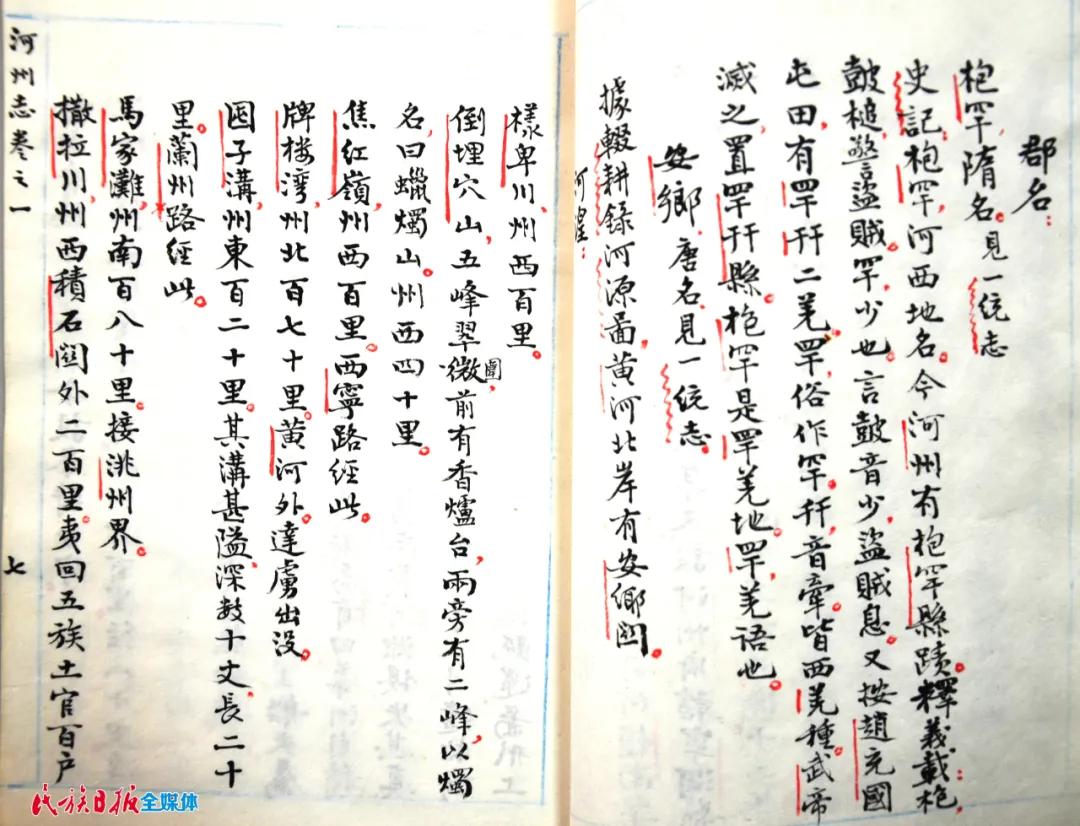 郡名：
枹罕，隋名。見一統志
史記：枹罕，河西地名。今河州有枹罕縣蹟。釋義載：枹，
鼓槌，警盜賊。罕，少也。言鼓音少，盜賊息。又按趙充國
屯田有罕幵二羌。罕，俗作罕。幵，音牽。皆西羌種。武帝
滅之，置罕幵縣。枹罕是罕羌地。罕，羌語也。
安鄉，唐名。見一統志。
據輟耕錄河源畾，黃河北岸有安鄉関。
河湟：
樣卑川，州西百里。
倒埋穴山，五峰翠微圍，前有香爐台，兩旁有二峰，以燭
名，曰蠟燭山。州西四十里。
焦紅嶺，州西百里。西寧路經此。
牌楼灣，州北百七十里。黃河外。達虜出没。
囤子溝，州東百二十里。其溝甚隘，深数十丈，長二十
里。蘭州路經此。
馬家灘，州南百八十里。接洮州界。
撒拉川，州西積石関外二百里。夷回五族土官百户
河州志卷之一
七
民族日报全媒体